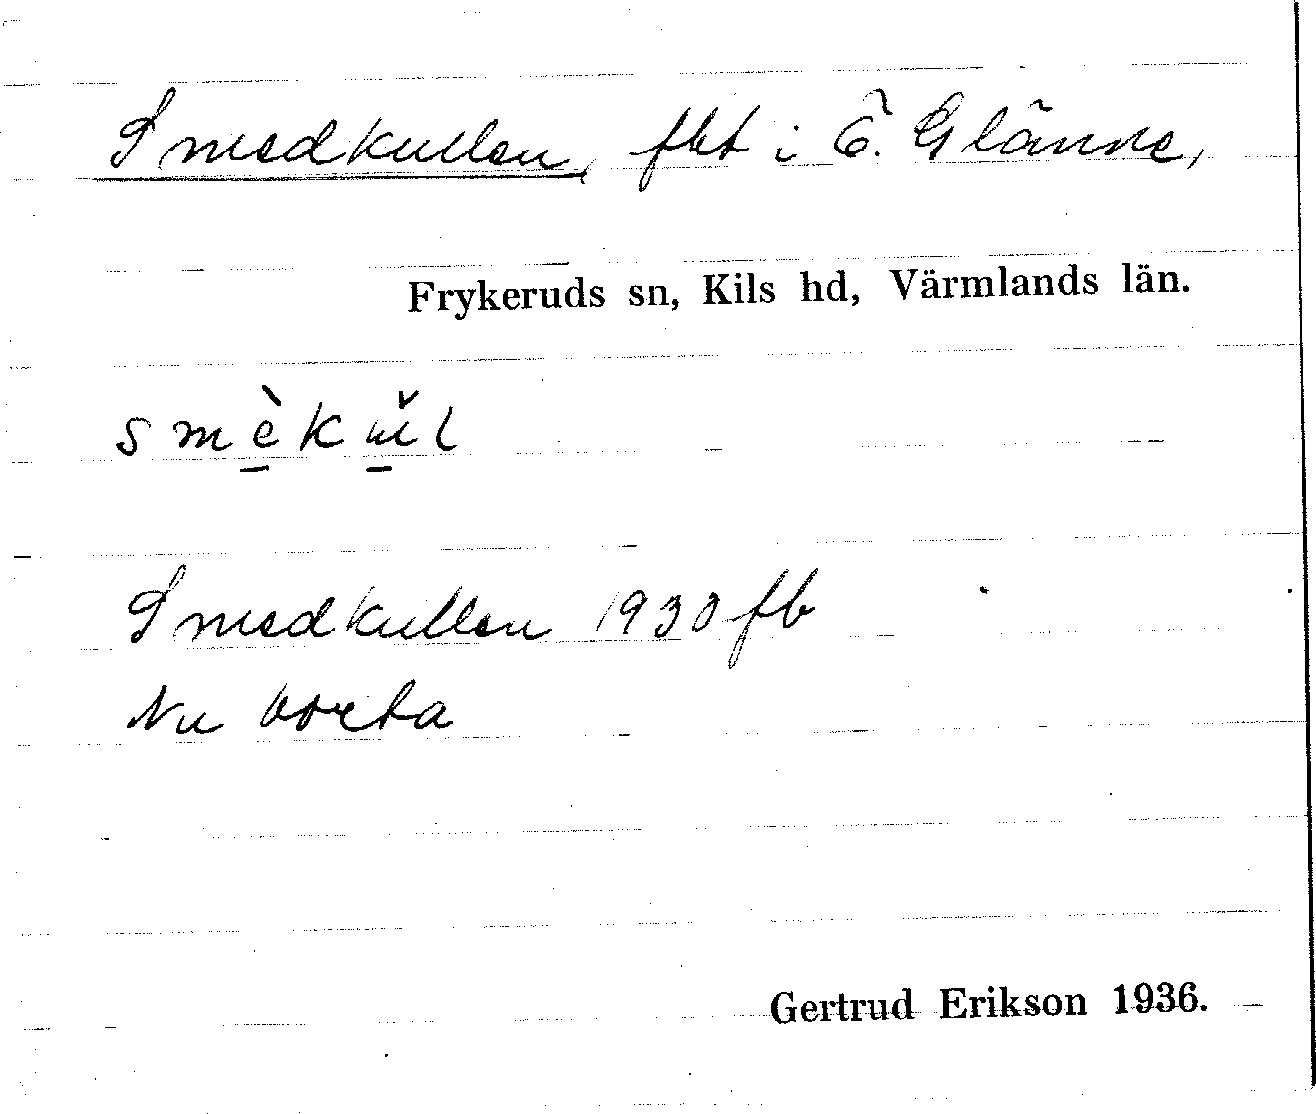 Smedkullen, fbt i Ö. Glänne,
Frykeruds sn, Kils hd, Värmlands län.
smè̠kʉ̠̌l
Smedkullen 1930 fb
Nu borta
Gertrud Erikson 1936.